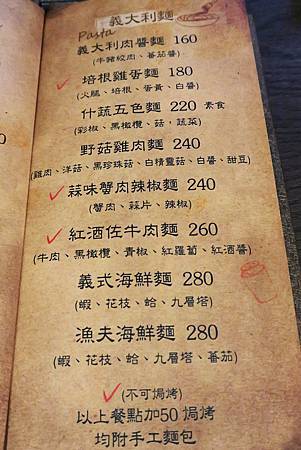 義大利麵
Pasta
義大利肉醬麵 160
(牛豬絞肉、蕃茄醬)
培根雞蛋麵 180
(火腿、培根、蛋黃、白醬)
什蔬五色麵 220 素食
(彩椒、黑橄欖、菇，蔬菜)
野菇雞肉麵 240
(雞肉、洋菇、黑珍珠菇、白精靈菇、白醬、甜豆)
蒜味蟹肉辣椒麵 240
(蟹肉、蒜片、辣椒)
紅酒佐牛肉麵 260
(牛肉、黑橄欖、青椒、紅蘿蔔、紅酒醬)
義式海鮮麵 280
(蝦、花枝、蛤、九層塔)
漁夫海鮮麵 280
(蝦、花枝、蛤、九層塔、蕃茄)
(不可焗烤)
以上餐點加50 焗烤
均附手工麵包